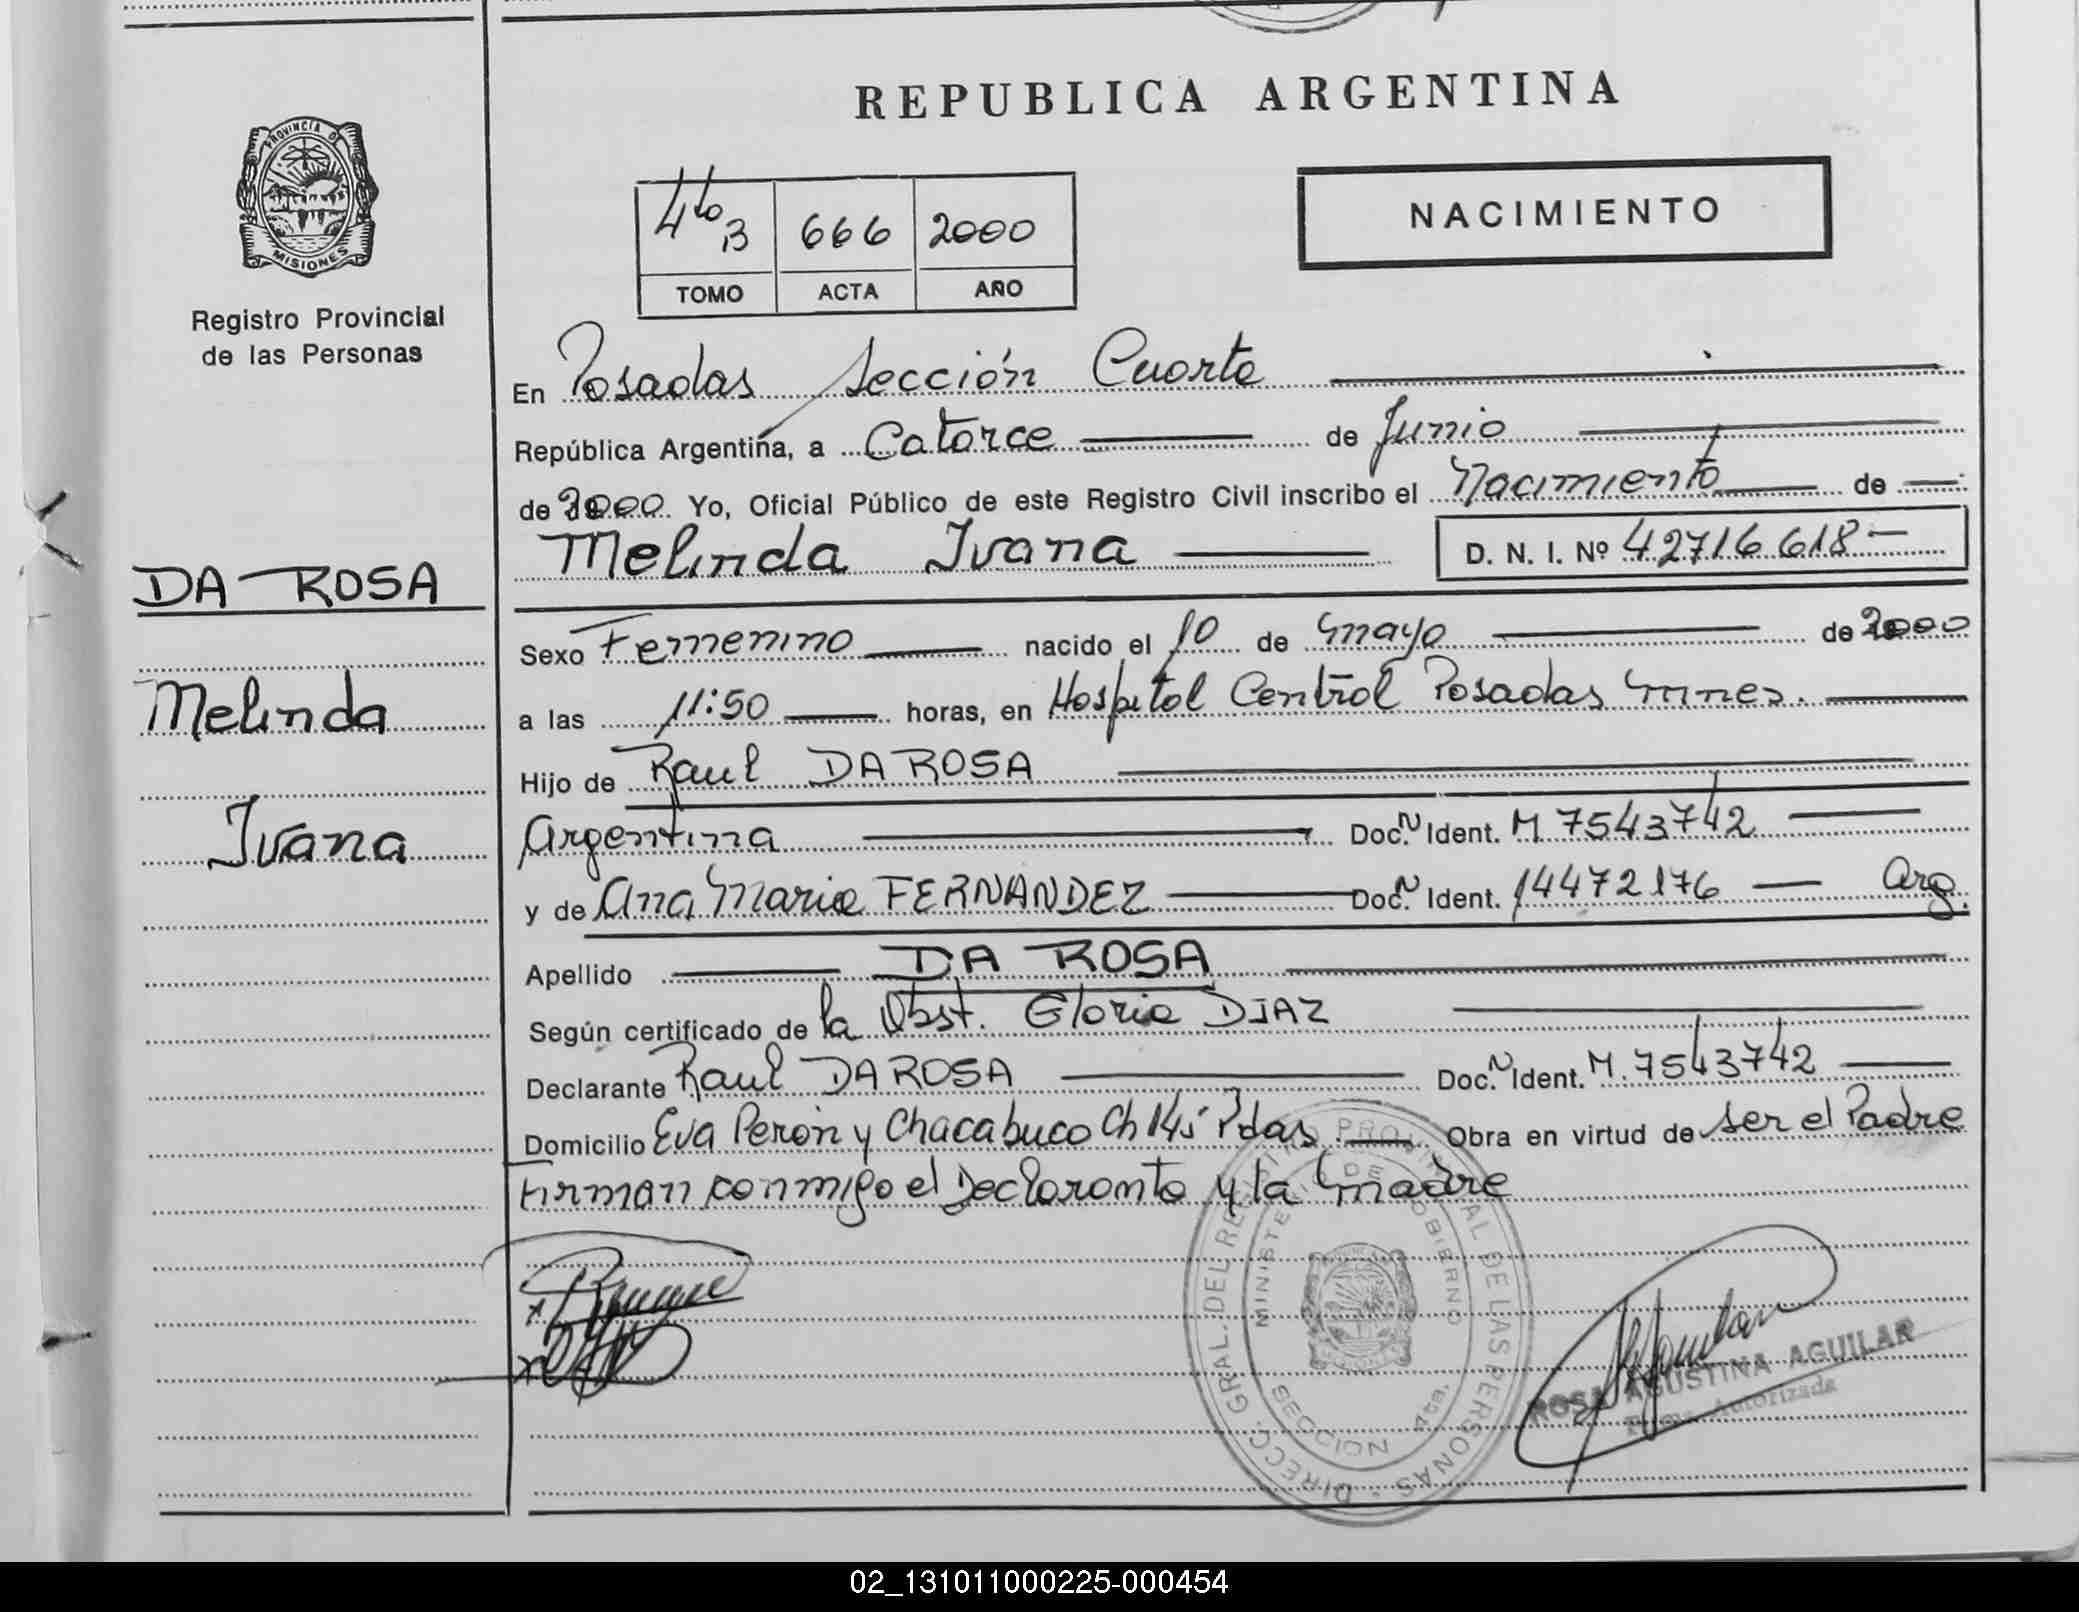 REPUBLICA ARGENTINA
PROVINCIA DE
MISIONES
Registro Provincial
de las Personas
4to B 666 2000
TOMO ACTA AÑO
NACIMIENTO
En Posadas Sección Cuarta
República Argentina, a Catorce de Junio
de 2000 Yo, Oficial Público de este Registro Civil inscribo el Nacimiento de
Melinda Ivana D. N. I. Nº 42716618
DA ROSA
Melinda
Ivana
Sexo Femenino nacido el 10 de mayo de 2000
a las 11:50 horas, en Hospital Central Posadas Mnes.
Hijo de Raul DA ROSA
Argentina Doc. N Ident. M 7543742
y de Ana Maria FERNANDEZ Doc. N Ident. 14472176 Arg.
Apellido DA ROSA
Según certificado de la Obst. Gloria DIAZ
Declarante Raul DA ROSA Doc. N Ident. M. 7543742
Domicilio Eva Perón y Chacabuco Ch 145 Pdas. Obra en virtud de ser el Padre
Firman conmigo el Declarante y la madre
DIRECC. GRAL. DEL REGISTRO PROVINCIAL DE LAS PERSONAS
MINISTERIO DE GOBIERNO
SECCION 4ta.
ROSA AGUSTINA AGUILAR
Firma Autorizada
02_131011000225-000454